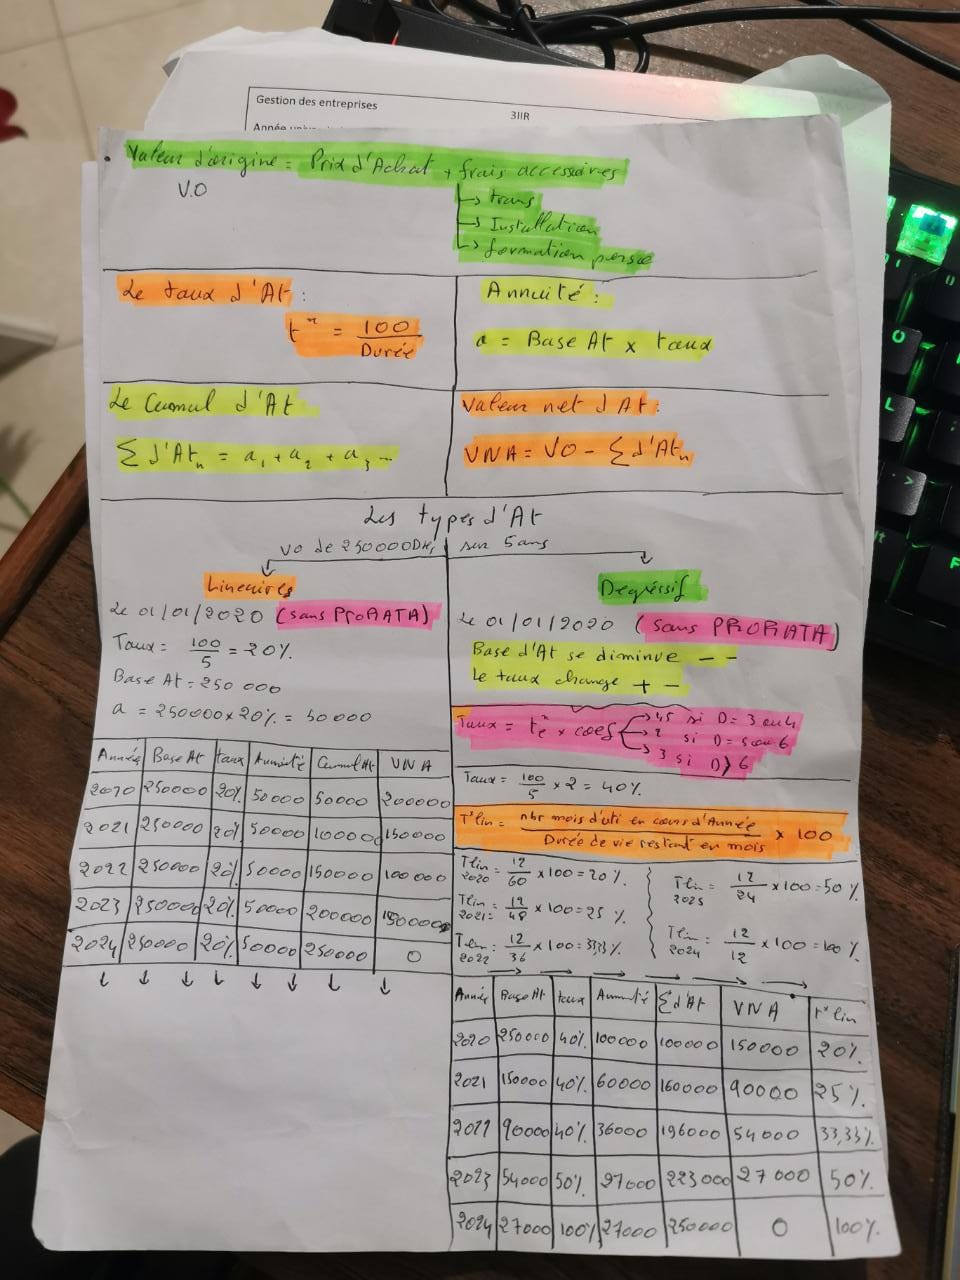 Gestion des entreprises
3IIR
Valeur d'origine = Prix d'Achat + frais accessoires
V.O
→ trans
→ Installation
→ formation
Le taux d'At :
tx = 100 / Durée
Annuité :
a = Base At x taux
Le Cumul d'At
∑ d'Atn = a1 + a2 + a3 ...
Valeur net d'At :
VNA = VO - ∑ d'Atn
Les types d'At
VO de 250000DH, sur 5ans
Lineaires
Le 01/01/2020 (sans PRORATA)
Taux = 100/5 = 20%.
Base At = 250 000
a = 250000 x 20% = 50 000
Année Base At taux Annuité Cumul At VNA
2020 250000 20% 50000 50000 200000
2021 250000 20% 50000 100000 150000
2022 250000 20% 50000 150000 100000
2023 250000 20% 50000 200000
2024 250000 20% 50000 250000 0
Degréssif
Le 01/01/2020 (sans PRORATA)
Base d'At se diminue - -
Le taux change + -
Taux = txe x coef
→ 1,5 si D = 3 ou 4
→ 2 si D = 5 ou 6
→ 3 si D > 6
Taux = 100/5 x 2 = 40%.
Txlin = nbr mois d'uti en cours d'Année / Durée de vie restant en mois x 100
Tlin 2020 = 12/60 x 100 = 20%.
Tlin 2021 = 12/48 x 100 = 25 %.
Tlin 2022 = 12/36 x 100 = 33,33%.
Tlin 2023 = 12/24 x 100 = 50 %
Tlin 2024 = 12/12 x 100 = 100 %
Année Base At taux Annuité ∑ d'At VNA Tx lin
2020 250000 40% 100000 100000 150000 20%.
2021 150000 40% 60000 160000 90000 25%.
2022 90000 40% 36000 196000 54000 33,33%.
2023 54000 50% 27000 223000 27000 50%.
2024 27000 100% 27000 250000 0 100%.